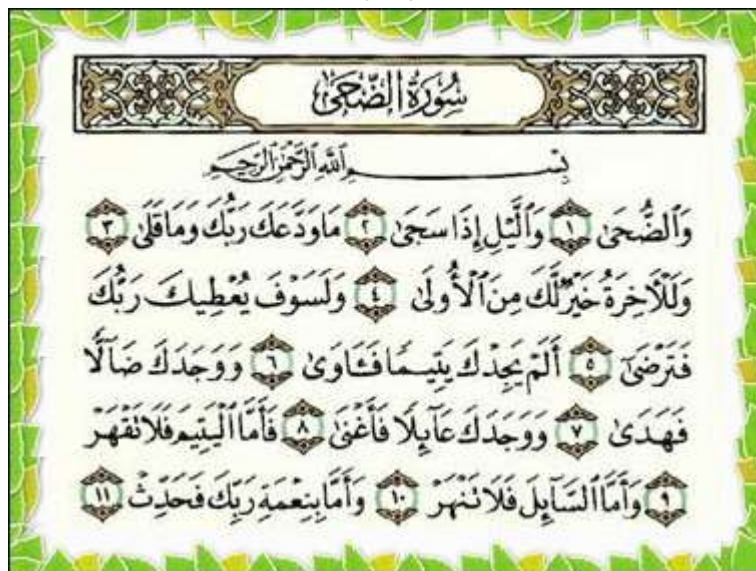 سُورَةُ الضُّحَىٰ
بِسْمِ اللَّهِ الرَّحْمَٰنِ الرَّحِيمِ
وَٱلضُّحَىٰ ١ وَٱلَّيْلِ إِذَا سَجَىٰ ٢ مَا وَدَّعَكَ رَبُّكَ وَمَا قَلَىٰ ٣
وَلَلْأَخِرَةُ خَيْرٌ لَّكَ مِنَ ٱلْأُولَىٰ ٤ وَلَسَوْفَ يُعْطِيكَ رَبُّكَ
فَتَرْضَىٰٓ ٥ أَلَمْ يَجِدْكَ يَتِيمًا فَـَٔاوَىٰ ٦ وَوَجَدَكَ ضَآلًّا
فَهَدَىٰ ٧ وَوَجَدَكَ عَآئِلًا فَأَغْنَىٰ ٨ فَأَمَّا ٱلْيَتِيمَ فَلَا تَقْهَرْ
٩ وَأَمَّا ٱلسَّآئِلَ فَلَا تَنْهَرْ ١٠ وَأَمَّا بِنِعْمَةِ رَبِّكَ فَحَدِّثْ ١١